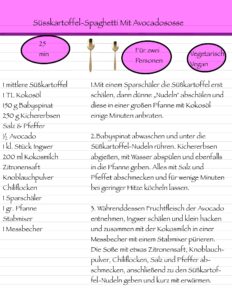 Süsskartoffel-Spaghetti Mit Avocadososse
25
min
Für zwei
Personen
Vegetarisch
Vegan
1 mittlere Süßkartoffel
1 TL Kokosöl
150 g Babyspinat
230 g Kichererbsen
Salz & Pfeffer
½ Avocado
1 kl. Stück Ingwer
200 ml Kokosmilch
Zitronensaft
Knoblauchpulver
Chiliflocken
1 Sparschäler
1 gr. Pfanne
Stabmixer
1 Messbecher
1.Mit einem Sparschäler die Süßkartoffel erst
schälen, dann dünne „Nudeln" abschälen und
diese in einer großen Pfanne mit Kokosöl
einige Minuten anbraten.
2.Babyspinat abwaschen und unter die
Süßkartoffel-Nudeln rühren. Kichererbsen
abgießen, mit Wasser abspülen und ebenfalls
in die Pfanne geben. Alles mit Salz und
Pfeffer abschmecken und für wenige Minuten
bei geringer Hitze köcheln lassen.
3. Währenddessen Fruchtfleisch der Avocado
entnehmen, Ingwer schälen und klein hacken
und zusammen mit der Kokosmilch in einer
Messbecher mit einem Stabmixer pürieren.
Die Soße mit etwas Zitronensaft, Knoblauch-
pulver, Chiliflocken, Salz und Pfeffer ab-
schmecken, anschließend zu den Süßkartof-
fel-Nudeln geben und kurz mit erwärmen.